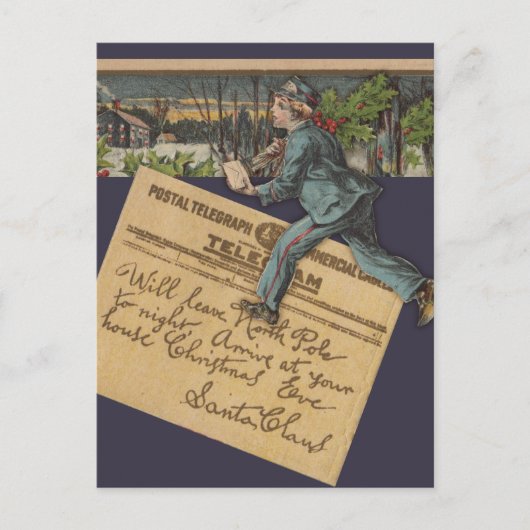 POSTAL TELEGRAPH COMMERCIAL CABLES
TELEGRAM
Will leave North Pole
to night, Arrive at your
house Christmas Eve
Santa Claus